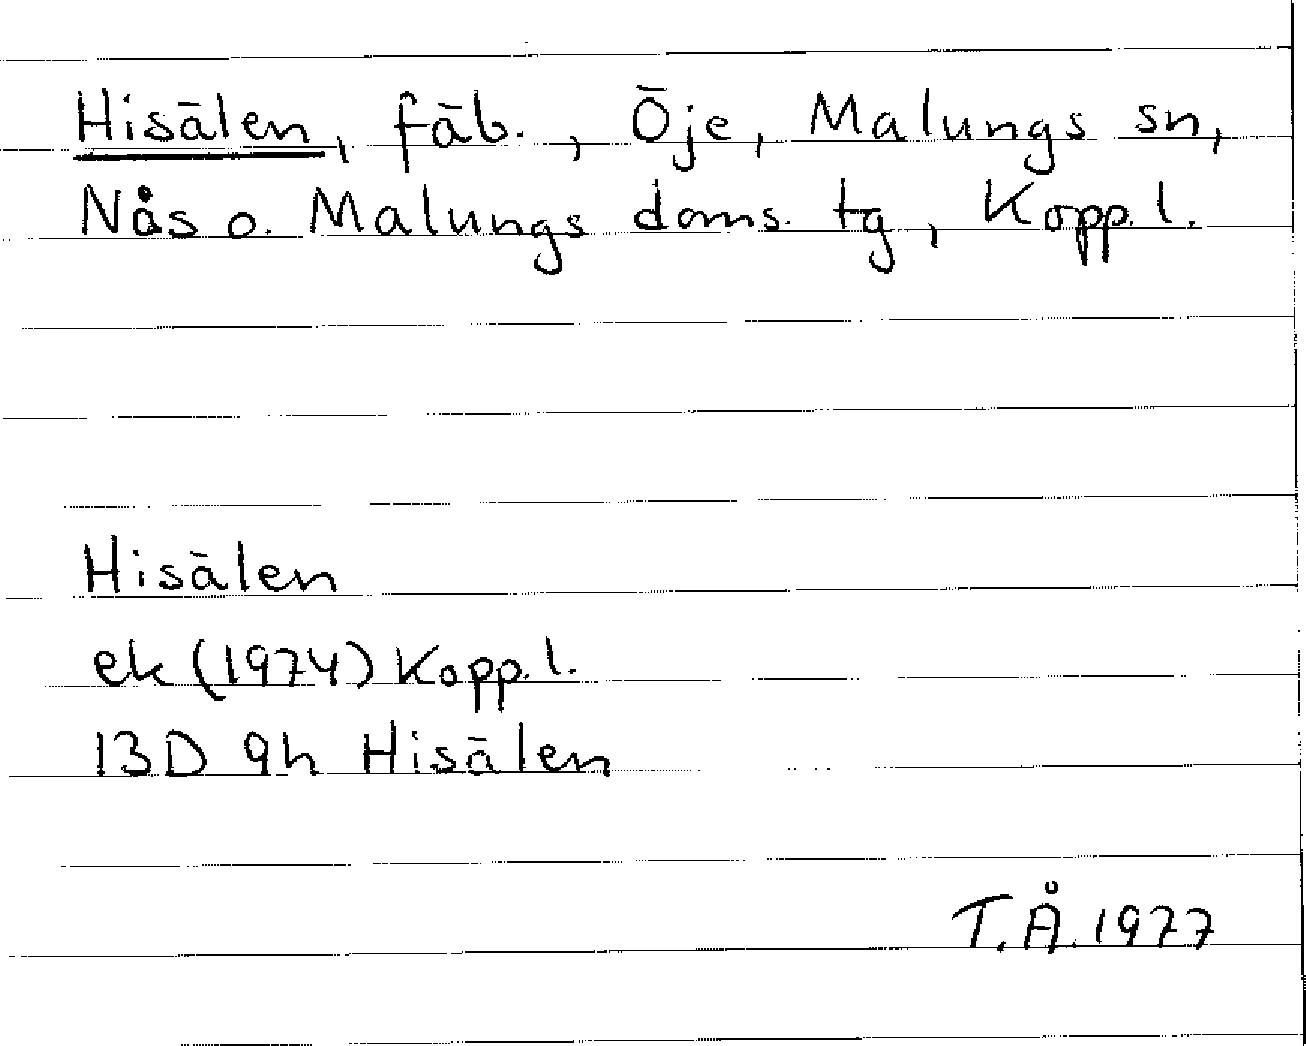 Hisälen, fäb., Öje, Malungs sn,
Nås o. Malungs doms. tg, Kopp. l.
Hisälen
ek (1974) Kopp. l.
13D 9h Hisälen
T.Å. 1977